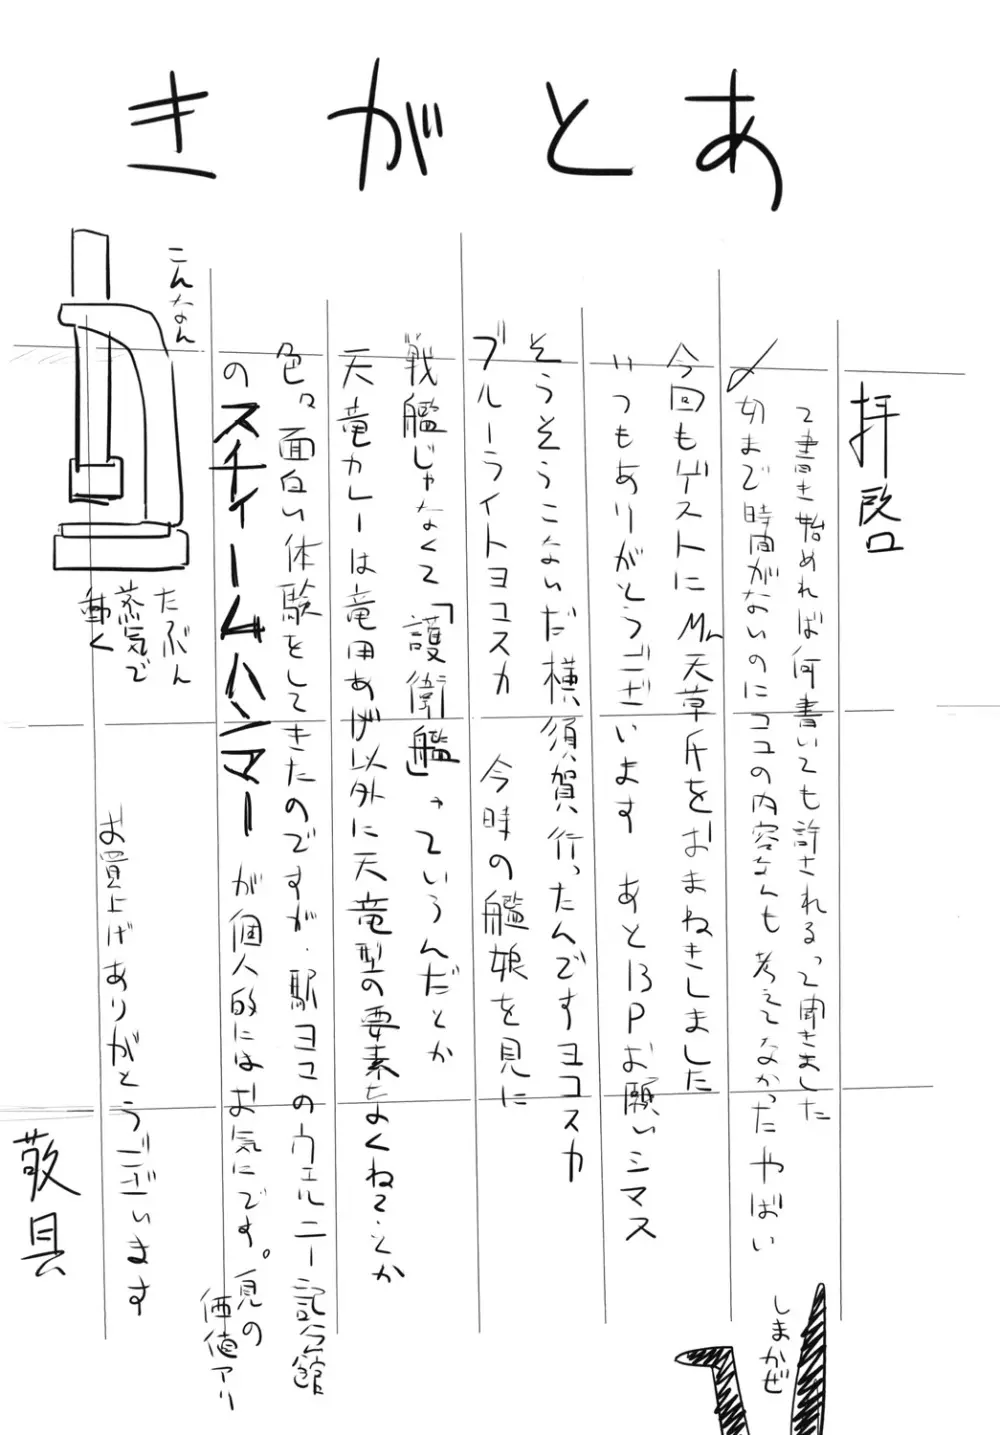 あとがき
拝啓
って書き始めれば何書いても許されるって聞きました
〆切まで時間がないのにココの内容なんも考えてなかったやばい
今回もゲストにMr.天草氏をおまねきしました
いつもありがとうございます あと13Pお願いシマス
そうそうこないだ横須賀行ったんですヨコスカ
ブルーライトヨコスカ 今時の艦娘を見に
戦艦じゃなくて「護衛艦」っていうんだとか
天竜カレーは竜田あげ以外に天竜型の要素なくねってとか
色々面白い体験をしてきたのですが、駅ヨコのヴェルニー記念館
のスチームハンマーが個人的にはお気にです。見の価値アリ
こんなん
たぶん
蒸気で
動く
お買上げありがとうございます
敬具
しまかぜ